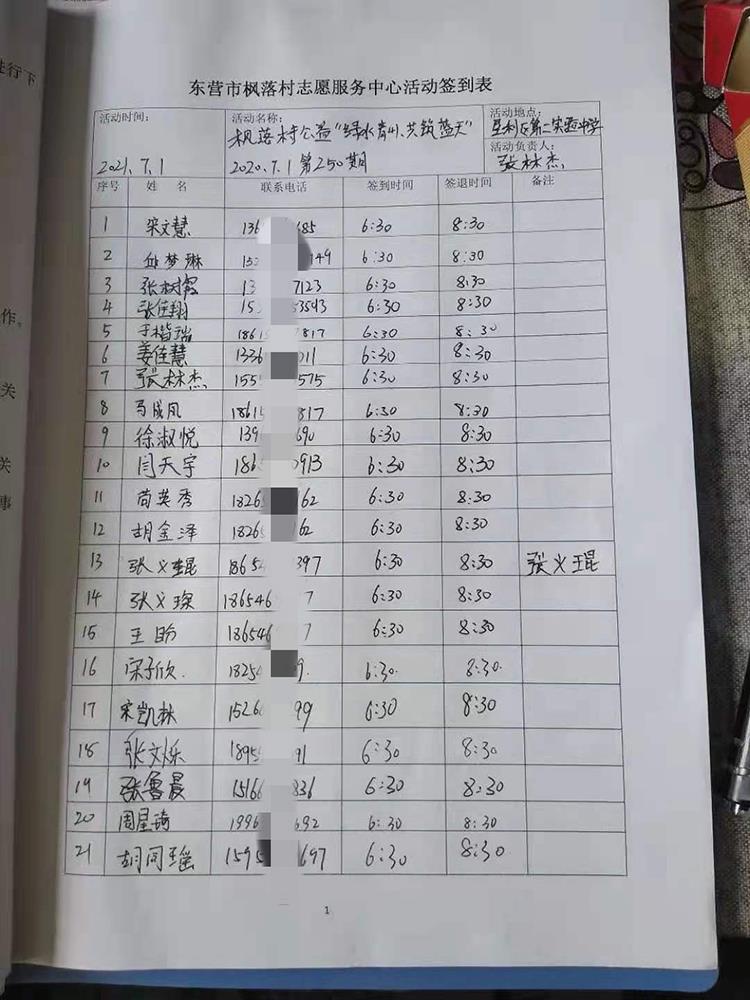 进行下
作。
关
关
事
东营市枫落村志愿服务中心活动签到表
活动时间：
2021.7.1
活动名称：
枫落村公益“绿水青山、共筑蓝天”
2020.7.1 第250期
活动地点：
垦利区第二实验中学
活动负责人：
张林杰
序号 姓 名 联系电话 签到时间 签退时间 备注
1 梁文慧 136 685 6:30 8:30
2 邱梦琳 153 149 6:30 8:30
3 张树霞 13 7123 6:30 8:30
4 张佳翔 15 53543 6:30 8:30
5 于楷瑞 1861 817 6:30 8:30
6 姜佳慧 1336 011 6:30 8:30
7 张林杰 155 575 6:30 8:30
8 马成凤 1861 817 6:30 8:30
9 徐淑悦 139 690 6:30 8:30
10 闫天宇 186 0913 6:30 8:30
11 苟英秀 1826 162 6:30 8:30
12 胡金泽 1826 162 6:30 8:30
13 张义琨 1865 397 6:30 8:30 张义琨
14 张义琛 186546 7 6:30 8:30
15 王盼 186546 7 6:30 8:30
16 宋子欣 1825 9 6:30 8:30
17 宋凯林 1526 99 6:30 8:30
18 张文烁 1895 91 6:30 8:30
19 张鲁晨 15166 836 6:30 8:30
20 周星琦 1996 692 6:30 8:30
21 胡闰瑶 1595 697 6:30 8:30
1